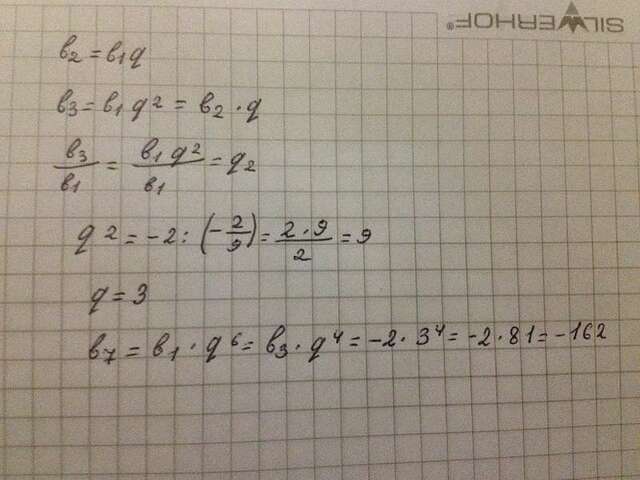 SILWERHOF®
b₂ = b₁q
b₃ = b₁q² = b₂ · q
b₃/b₁ = b₁q²/b₁ = q₂
q² = -2 : (-2/9) = 2·9/2 = 9
q = 3
b₇ = b₁ · q⁶ = b₃ · q⁴ = -2 · 3⁴ = -2 · 81 = -162